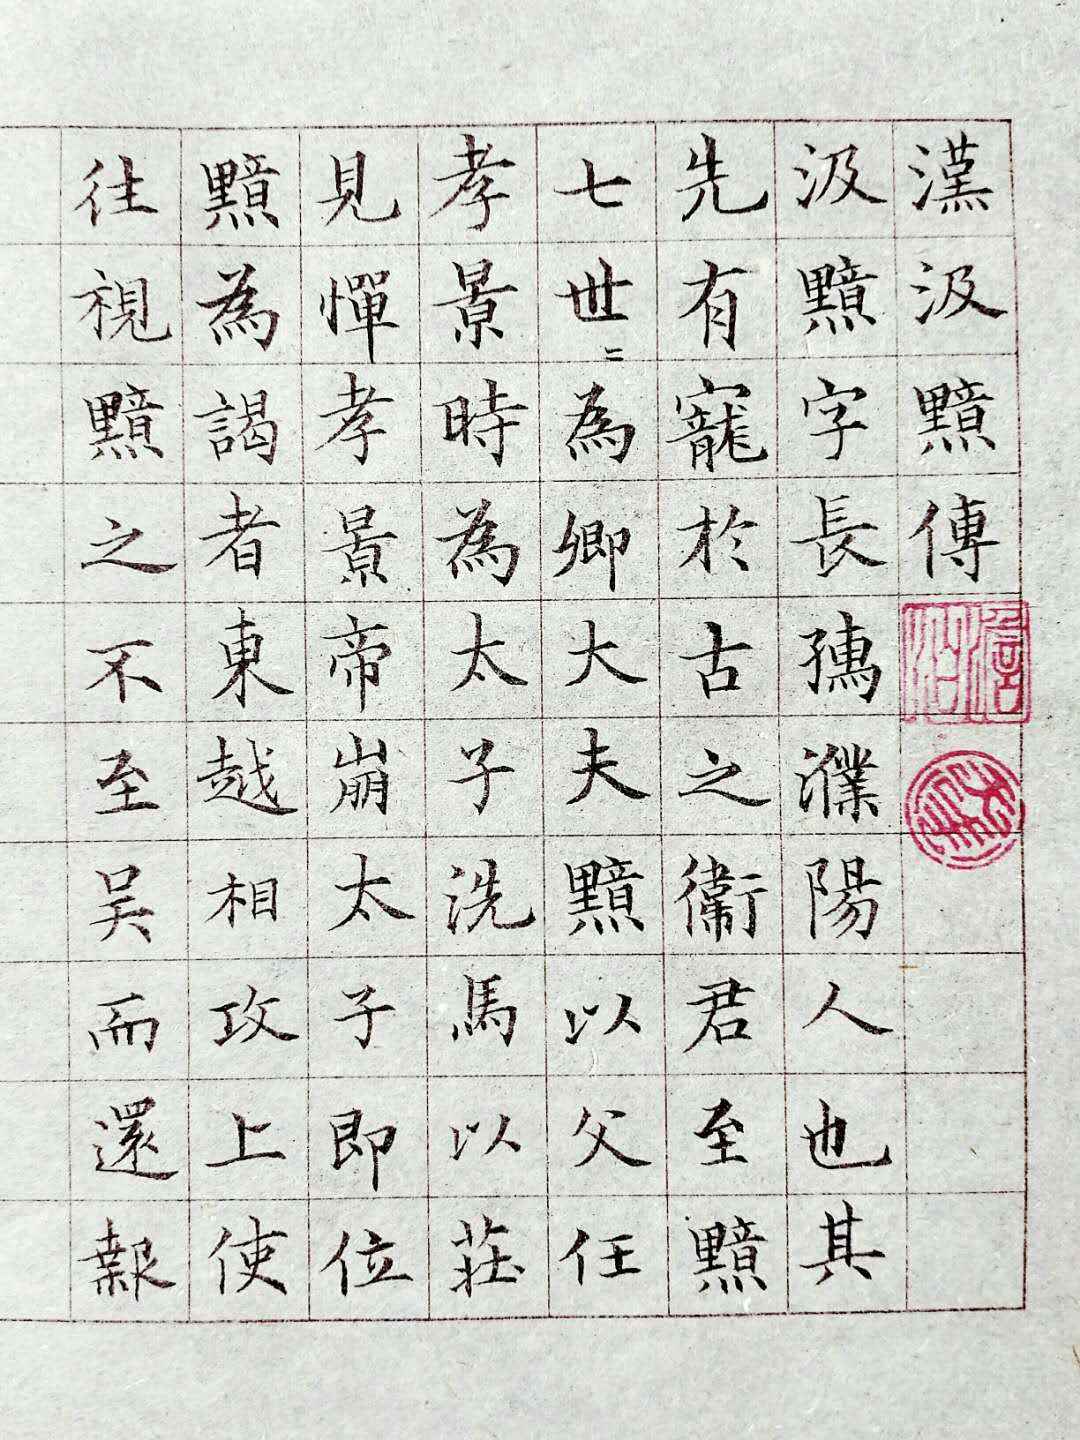 漢汲黯傳
汲黯字長孺濮陽人也其
先有寵於古之衞君至黯
七世〻為卿大夫黯以父任
孝景時為太子洗馬以莊
見憚孝景帝崩太子即位
黯為謁者東越相攻上使
往視黯之不至吳而還報